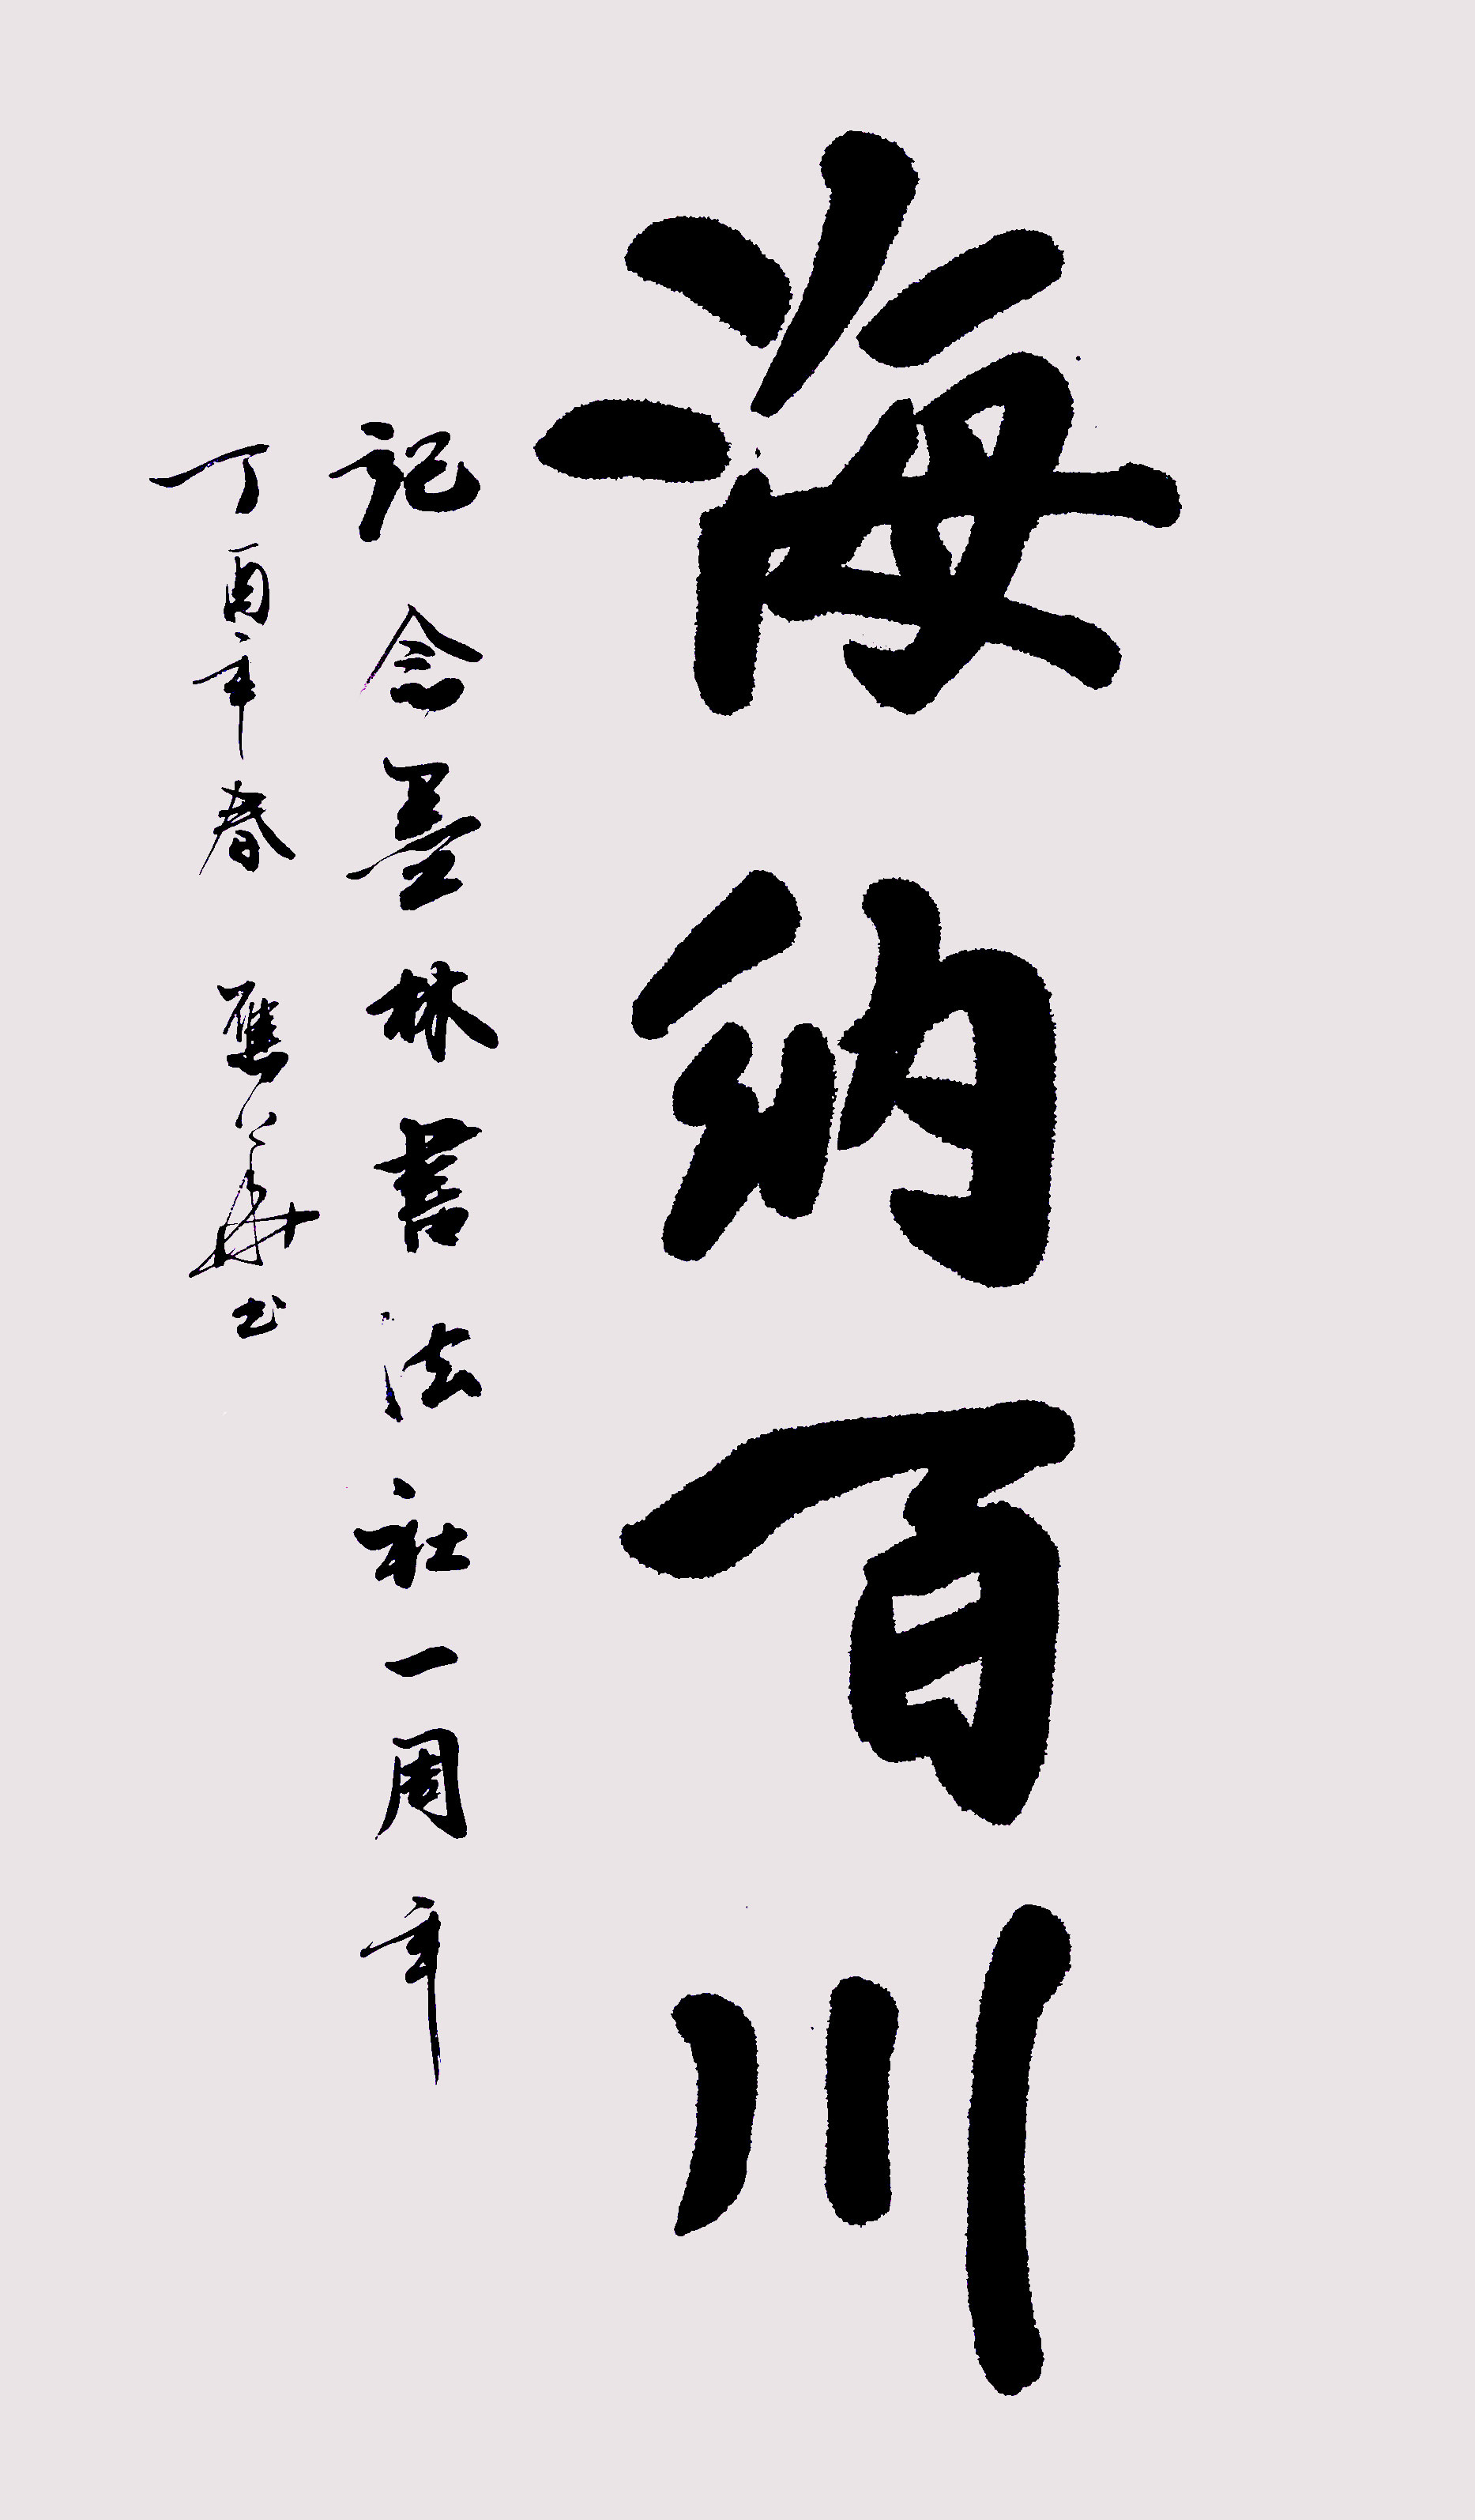 海纳百川
记念墨林书法社一周年
丁酉年春
书